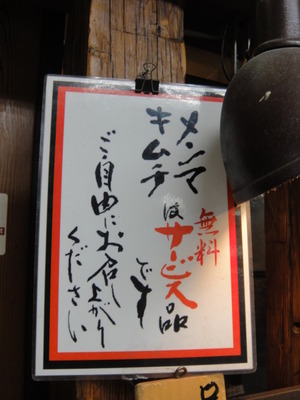 メンマ
キムチ
は
無料
サービス品
です
ご自由にお召し上がり
ください